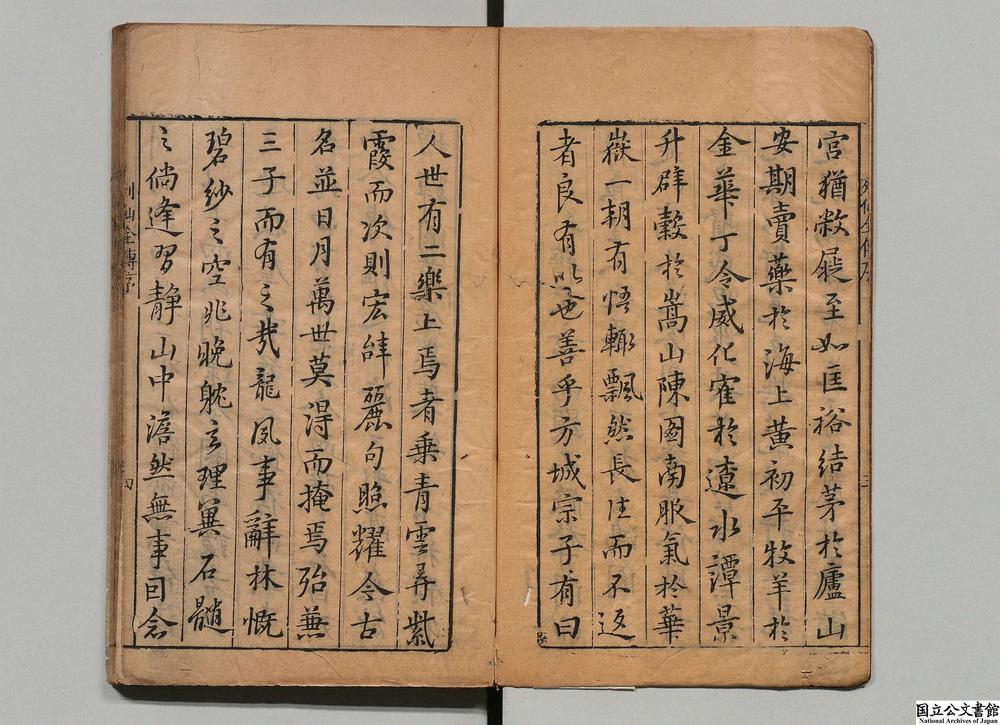 宮猶敝屣至如匡裕結茅於廬山
安期賣藥於海上黄初平牧羊於
金華丁令威化寉於遼水譚景
升辟穀於嵩山陳圖南服氣於華
嶽一朝有悟輙飄然長往而不返
者良有以也善乎方城宗子有曰
人世有二樂上焉者乗青雲尋紫
霞而次則宏辭麗句照耀今古
名並日月萬世莫得而掩焉殆兼
三子而有之哉龍鳳事辭林慨
碧紗之空兆晚躭玄理冀石髓
之倘逢習静山中澹然無事因念
列仙全傳序
四
国立公文書館
National Archives of Japan